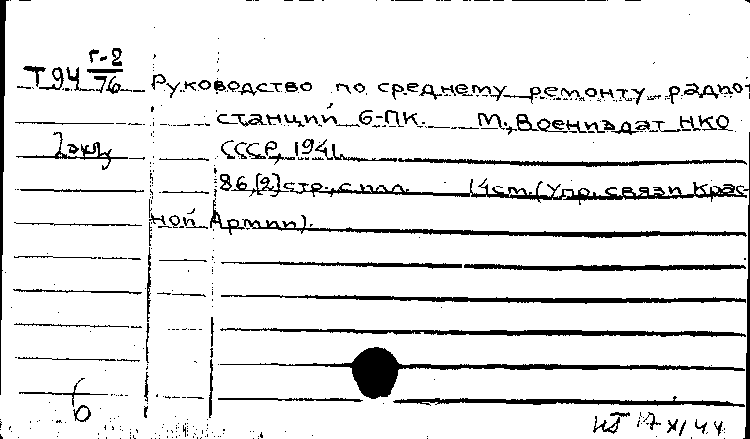 Т94 Г-2/76
Руководство по среднему ремонту радиостанций 6-ПК. М., Воениздат НКО
2 экз
СССР, 1941.
86,[2] стр., с илл. 14 см. (Упр. связи Крас-
ной Армии).
6
17 XI 44